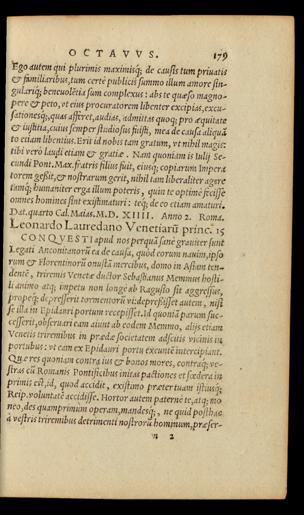 OCTAVVS. 179
Ego autem qui plurimis maximisq; de causis tum priuatis
& familiaribus, tum certè publicis summo illum amore sin-
gulariq; beneuolētia sum complexus: abs te quæso magno-
pere & peto, vt eius procuratorem libenter excipias, excu-
sationesq;, quas afferet, audias, admittas quoq; pro æquitate
& iustitia, cuius semper studiosus fuisti, mea de causa aliquā
to etiam libentius. Erit id nobis tam gratum, vt nihil magis:
tibi verò laudi etiam & gratiæ. Nam quoniam is Iulij Se-
cundi Pont. Max. fratris filius fuit, eiusq; copiarum Imperā
torem gessit, & nostrarum gerit, nihil tam liberaliter agere
tamq; humaniter erga illum poteris, quin te optimè fecisse
omnes homines sint existimaturi: teq; de eo etiam amaturi.
Dat. quarto Cal. Maias. M. D. XIIII. Anno 2. Roma.
Leonardo Lauredano Venetiarū princ. 15
CONQVESTI apud nos perquā sanè grauiter sunt
Legati Anconitanorū ea de causa, quòd eorum nauim, ipso
rum & Florentinorū onustā mercibus, domo in Asiam ten-
dentē, triremis Venetæ ductor Sebastianus Memmus hosti-
li animo atq; impetu non longè ab Ragusio sit aggressus,
propeq; depresserit tormentorū vi: depressisset autem, nisi
se illa in Epidauri portum recepisset. Id quontā parum suc-
cesserit, obseruari eam aiunt ab eodem Memmo, alijs etiam
Venetis triremibus in prædæ societatem adscitis vicinis in
portubus: vt eam ex Epidauri portu exeuntē intercipiant.
Quæ res quoniam contra ius & bonos mores, contraq; ve-
stras cū Romanis Pontificibus initas pactiones et fœdera in
primis est, id, quod accidit, existimo præter tuam istiusq;
Reip. voluntatē accidisse. Hortor autem paternè te, atq; mo
neo, des quamprimum operam, mandesq;, ne quid posthac
à vestris triremibus detrimenti nostrorū hominum, præser-
2